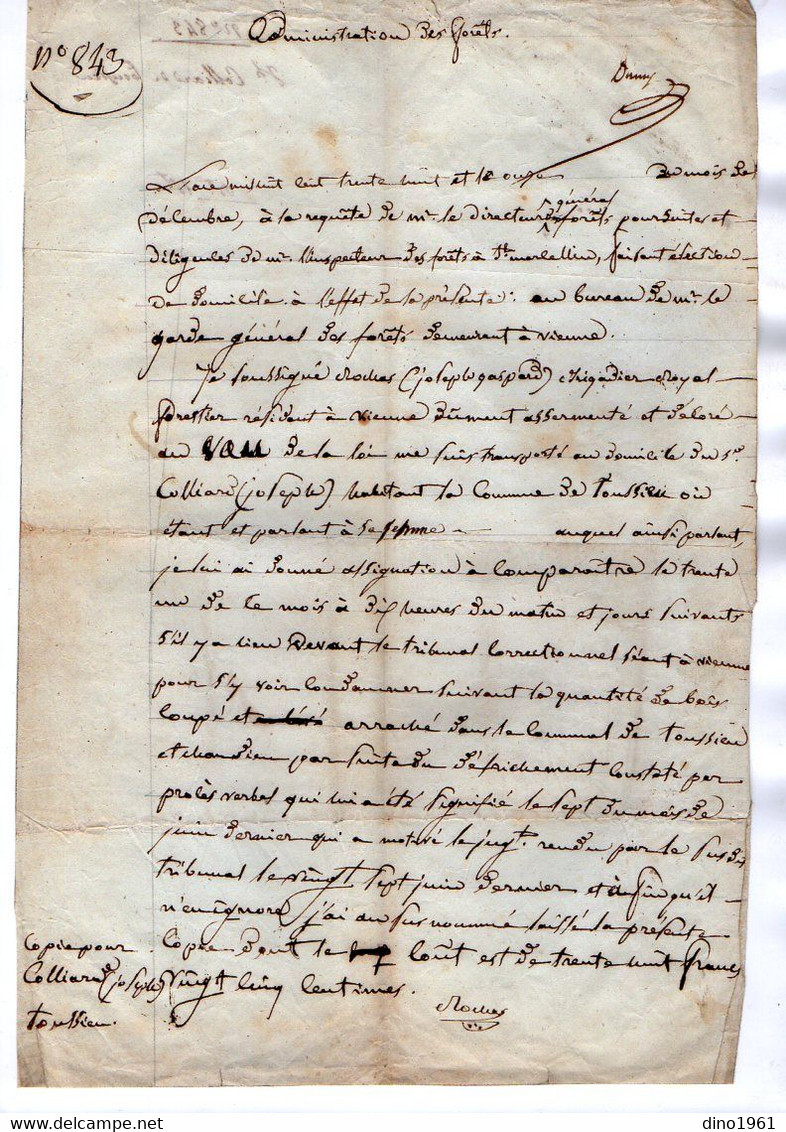 n° 843
Administration des forêts.
L'an mil huit cent trente huit et le onze du mois de
décembre, à la requête de mr. le directeur général des forêts poursuites et
diligences de mr. l'inspecteur des forêts à St. marcellin, faisant élection
de domicile à l'effet de la présente : au bureau de mr. le
garde général des forêts demeurant à vienne.
Je soussigné Rochas (joseph gaspard) Brigadier Royal
forestier résidant à vienne dûment assermenté et décoré
au vœu de la loi me suis transporté au domicile du sr.
Colliard (joseph) habitant la Commune de Toussieu où
étant et parlant à sa femme auquel ainsi parlant,
je lui ai donné assignation à comparaître le trente
un de ce mois à dix heures du matin et jours suivants
s'il y a lieu devant le tribunal correctionnel séant à vienne
pour s'y voir condamner suivant la quantité de bois
coupé et arraché dans le communal de toussieu
et chandieu par suite du défrichement constaté par
procès verbal qui lui a été signifié le sept du mois de
juin dernier qui a motivé le jugt. rendu par le susdit
tribunal le vingt sept juin dernier et afin qu'il
n'en ignore j'ai au susnommé laissé la présente
copie dont le coût est de trente huit francs
vingt cinq centimes.
Rochas
Copie pour
Colliard (joseph)
toussieu.
dino1961